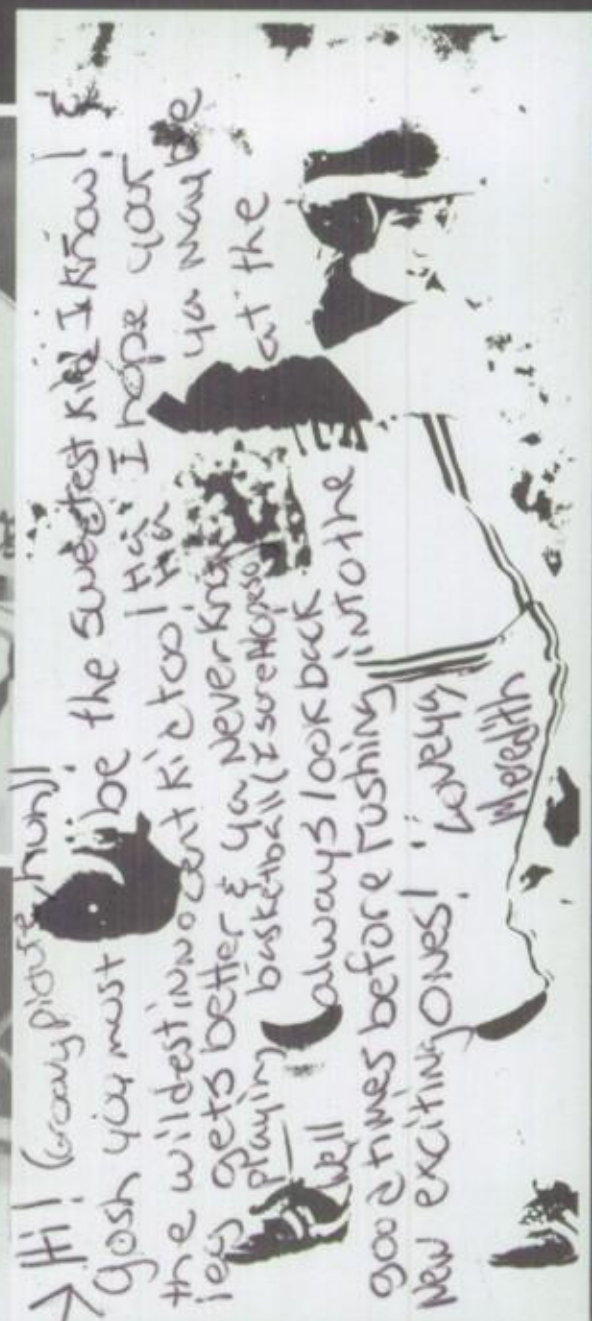 > Hi! (Groovy picture, huh)!
gosh you must be the sweetest kid I know! &
the wildest innocent kid too! Ha Ha I hope your
leg gets better & ya never know ya may be
playing basketball (I sure Hope so) at the
well always look back
good times before rushing into the
New exciting ones!
Love ya,
Meredith